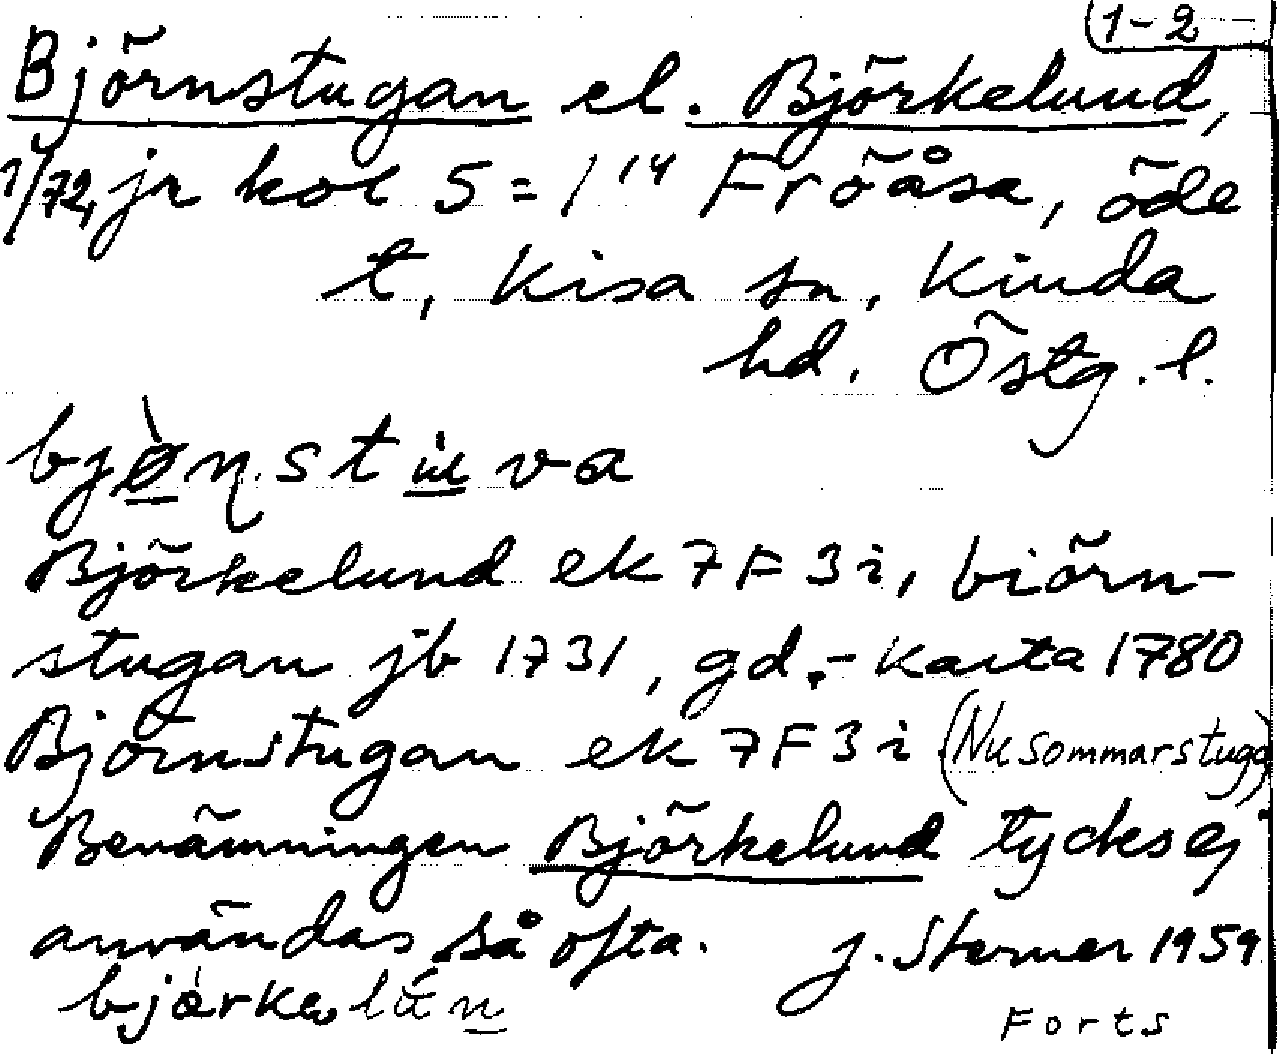 1-2
Björnstugan el. Björkelund,
1/72, jr kol 5 = 1/14 Fröåsa, öde
t, Kisa sn, Kinda
hd. Östg. l.
bjø̀ṇstu̇va
Björkelund ek 7F3i, biörn-
stugan jb 1731, gd.-karta 1780
Björnstugan ek 7F3i (Nu sommarstuga)
Benämningen Björkelund tycks ej
användas så ofta. J. Sterner 1959
bjàrkəlún
Forts